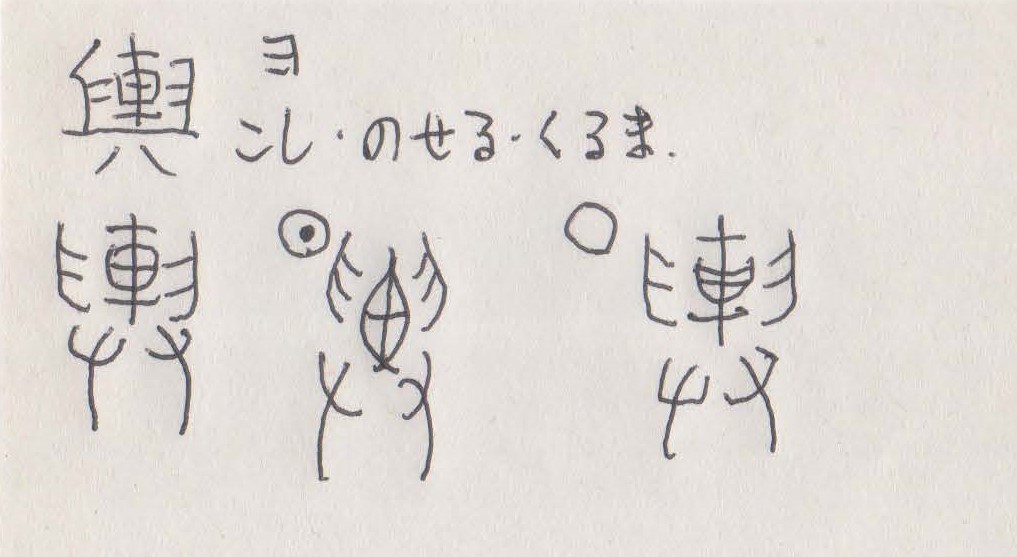 輿 ヨ
こし・のせる・くるま.